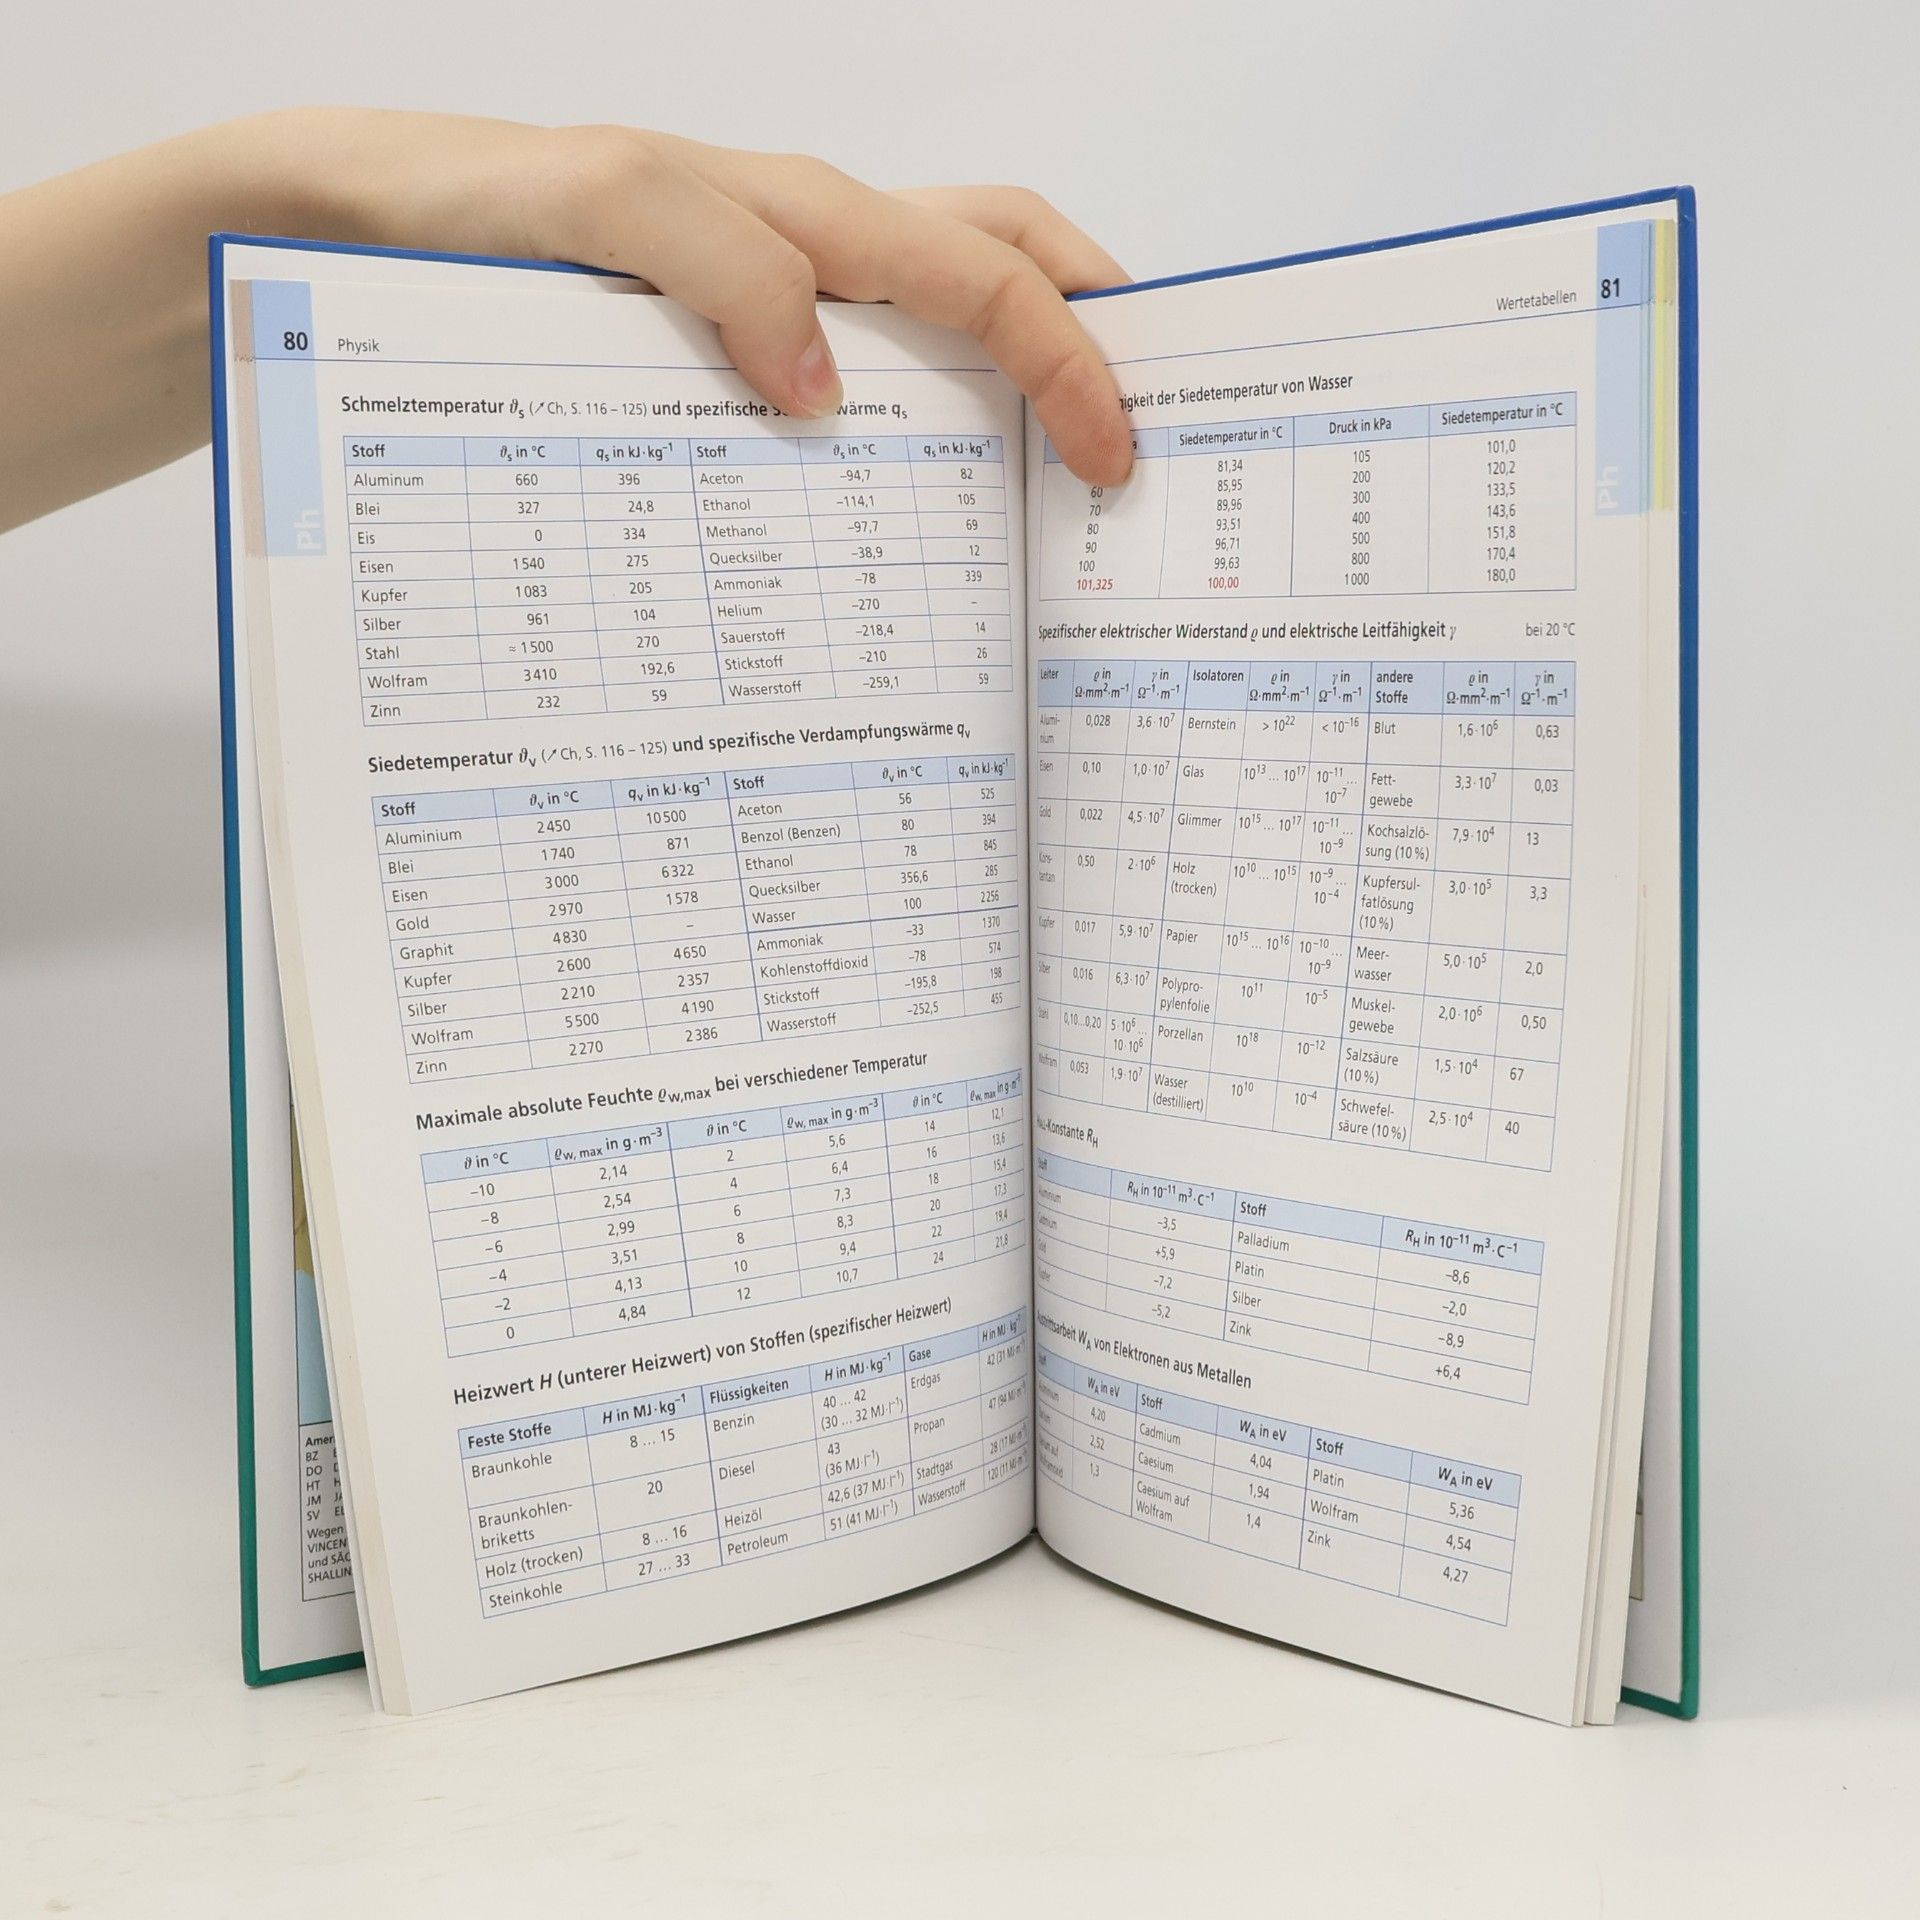 80 Physik
Schmelztemperatur ϑs (↗Ch, S. 116 – 125) und spezifische wärme qs
Stoff ϑs in °C qs in kJ·kg⁻¹ Stoff ϑs in °C qs in kJ·kg⁻¹
Aluminum 660 396 Aceton –94,7 82
Blei 327 24,8 Ethanol –114,1 105
Eis 0 334 Methanol –97,7 69
Eisen 1540 275 Quecksilber –38,9 12
Kupfer 1083 205 Ammoniak –78 339
Silber 961 104 Helium –270 –
Stahl ≈ 1500 270 Sauerstoff –218,4 14
Wolfram 3410 192,6 Stickstoff –210 26
Zinn 232 59 Wasserstoff –259,1 59
Siedetemperatur ϑv (↗Ch, S. 116 – 125) und spezifische Verdampfungswärme qv
Stoff ϑv in °C qv in kJ·kg⁻¹ Stoff ϑv in °C qv in kJ·kg⁻¹
Aluminium 2450 10500 Aceton 56 525
Blei 1740 871 Benzol (Benzen) 80 394
Eisen 3000 6322 Ethanol 78 845
Gold 2970 1578 Quecksilber 356,6 285
Graphit 4830 – Wasser 100 2256
Kupfer 2600 4650 Ammoniak –33 1370
Silber 2210 2357 Kohlenstoffdioxid –78 574
Wolfram 5500 4190 Stickstoff –195,8 198
Zinn 2270 2386 Wasserstoff –252,5 455
Maximale absolute Feuchte ϱw,max bei verschiedener Temperatur
ϑ in °C ϱw, max in g·m⁻³ ϑ in °C ϱw, max in g·m⁻³ ϑ in °C ϱw, max in g·m⁻³
–10 2,14 2 5,6 14 12,1
–8 2,54 4 6,4 16 13,6
–6 2,99 6 7,3 18 15,4
–4 3,51 8 8,3 20 17,3
–2 4,13 10 9,4 22 19,4
0 4,84 12 10,7 24 21,8
Heizwert H (unterer Heizwert) von Stoffen (spezifischer Heizwert)
Feste Stoffe H in MJ·kg⁻¹ Flüssigkeiten H in MJ·kg⁻¹ Gase H in MJ·kg⁻¹
Braunkohle 8 ... 15 Benzin 40 ... 42 Erdgas 42 (31 MJ·m⁻³)
(30 ... 32 MJ·l⁻¹)
Braunkohlen- 20 Diesel 43 Propan 47 (94 MJ·m⁻³)
briketts (36 MJ·l⁻¹)
Holz (trocken) 8 ... 16 Heizöl 42,6 (37 MJ·l⁻¹) Stadtgas 28 (17 MJ·m⁻³)
Steinkohle 27 ... 33 Petroleum 51 (41 MJ·l⁻¹) Wasserstoff 120 (11 MJ·m⁻³)
Ph
Amer
BZ
DO
HT
JM
SV
Wegen
VINCEN
SHALLIN
Wertetabellen 81
igkeit der Siedetemperatur von Wasser
Siedetemperatur in °C Druck in kPa Siedetemperatur in °C
81,34 105 101,0
60 85,95 200 120,2
70 89,96 300 133,5
80 93,51 400 143,6
90 96,71 500 151,8
100 99,63 800 170,4
101,325 100,00 1000 180,0
Spezifischer elektrischer Widerstand ϱ und elektrische Leitfähigkeit γ bei 20 °C
Leiter ϱ in γ in Isolatoren ϱ in γ in andere ϱ in γ in
Ω·mm²·m⁻¹ Ω⁻¹·m⁻¹ Ω·mm²·m⁻¹ Ω⁻¹·m⁻¹ Stoffe Ω·mm²·m⁻¹ Ω⁻¹·m⁻¹
Alumi- 0,028 3,6·10⁷ Bernstein > 10²² < 10⁻¹⁶ Blut 1,6·10⁶ 0,63
nium
Eisen 0,10 1,0·10⁷ Glas 10¹³ ... 10¹⁷ 10⁻¹¹ ... Fett- 3,3·10⁷ 0,03
10⁻⁷ gewebe
Gold 0,022 4,5·10⁷ Glimmer 10¹⁵ ... 10¹⁷ 10⁻¹¹ ... Kochsalzlö- 7,9·10⁴ 13
10⁻⁹ sung (10 %)
Kons- 0,50 2·10⁶ Holz 10¹⁰ ... 10¹⁵ 10⁻⁹ ... Kupfersul- 3,0·10⁵ 3,3
tantan (trocken) 10⁻⁴ fatlösung
(10 %)
Kupfer 0,017 5,9·10⁷ Papier 10¹⁵ ... 10¹⁶ 10⁻¹⁰ ... Meer- 5,0·10⁵ 2,0
10⁻⁹ wasser
Silber 0,016 6,3·10⁷ Polypro- 10¹¹ 10⁻⁵ Muskel- 2,0·10⁶ 0,50
pylenfolie gewebe
Stahl 0,10...0,20 5·10⁶ ... Porzellan 10¹⁸ 10⁻¹² Salzsäure 1,5·10⁴ 67
10·10⁶ (10 %)
Wolfram 0,053 1,9·10⁷ Wasser 10¹⁰ 10⁻⁴ Schwefel- 2,5·10⁴ 40
(destilliert) säure (10 %)
HALL-Konstante RH
Stoff RH in 10⁻¹¹ m³·C⁻¹ Stoff RH in 10⁻¹¹ m³·C⁻¹
Aluminium –3,5 Palladium –8,6
Cadmium +5,9 Platin –2,0
Gold –7,2 Silber –8,9
Kupfer –5,2 Zink +6,4
Austrittsarbeit WA von Elektronen aus Metallen
Stoff WA in eV Stoff WA in eV Stoff WA in eV
Aluminium 4,20 Cadmium 4,04 Platin 5,36
2,52 Caesium 1,94 Wolfram 4,54
1,3 Caesium auf 1,4 Zink 4,27
Wolfram
Ph